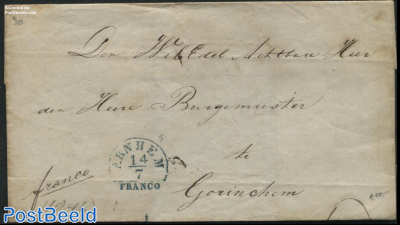 Den WelEdel Achtbare Heer
den Heere Burgemeester
te
Gorinchem
franco
ARNHEM
14
7
FRANCO
PostBeeld